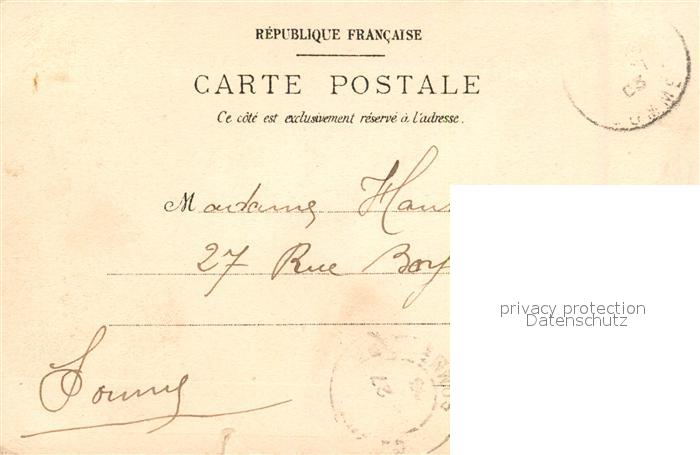 RÉPUBLIQUE FRANÇAISE
CARTE POSTALE
Ce côté est exclusivement réservé à l'adresse.
Madame
27 Rue
privacy protection
Datenschutz
Somme